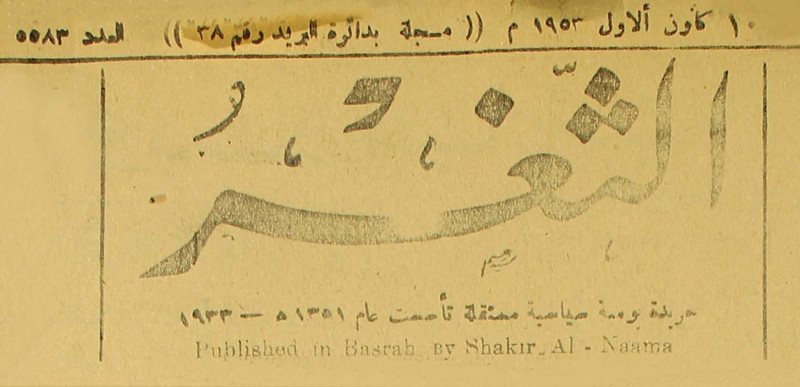 ١٠ كانون ألاول ١٩٥٣ م (( مسجلة بدائرة البريد رقم ٣٨ )) العدد ٥٥٨٣
الثغر
جريدة يومية سياسية مستقلة تأسست عام ١٣٥١ ه — ١٩٣٣
Published in Basrah By Shakir Al - Naama